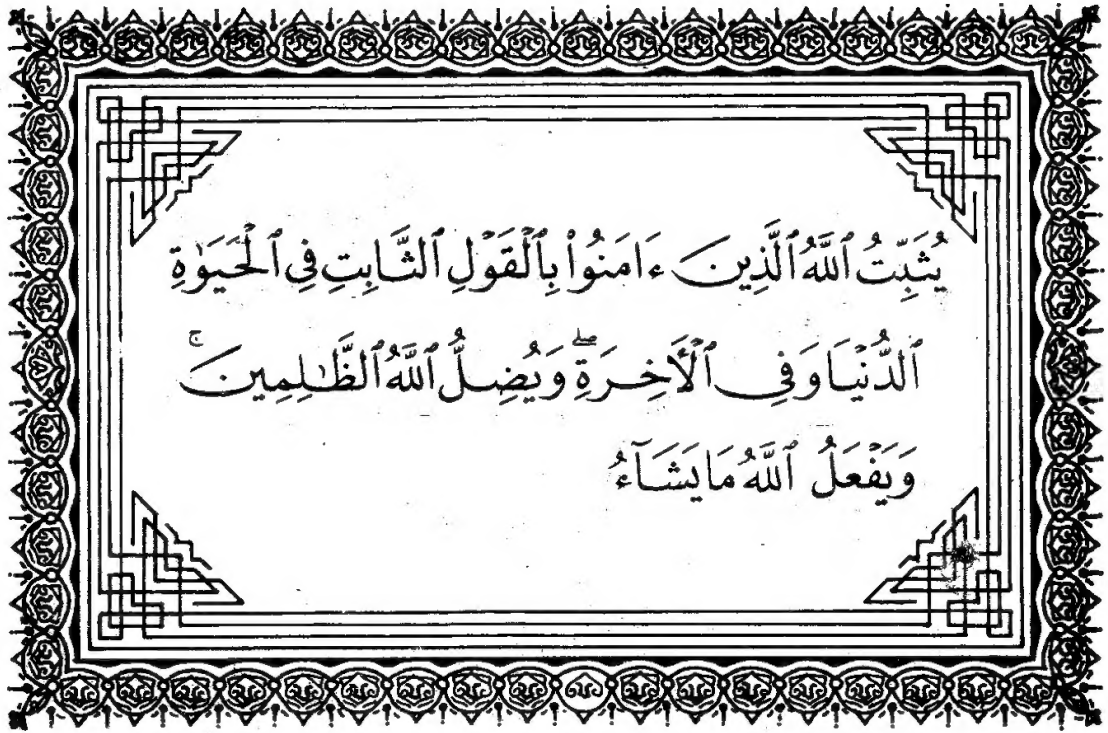 يُثَبِّتُ ٱللَّهُ ٱلَّذِينَ ءَامَنُوا۟ بِٱلْقَوْلِ ٱلثَّابِتِ فِى ٱلْحَيَوٰةِ
ٱلدُّنْيَا وَفِى ٱلْأَخِرَةِۖ وَيُضِلُّ ٱللَّهُ ٱلظَّٰلِمِينَۚ
وَيَفْعَلُ ٱللَّهُ مَا يَشَآءُ